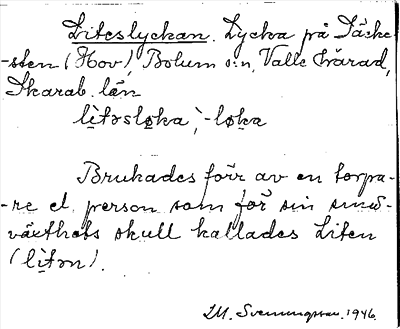 Liteslyckan. Lycka på Jäde-
-sten (Hov), Bolum s:n, Valle härad,
Skarab. län
li̬təsløka; -løka
Brukades förr av en torpa-
-re el. person som för sin små-
växthets skull kallades Liten
(li̬tən).
M. Svenungsson. 1946.